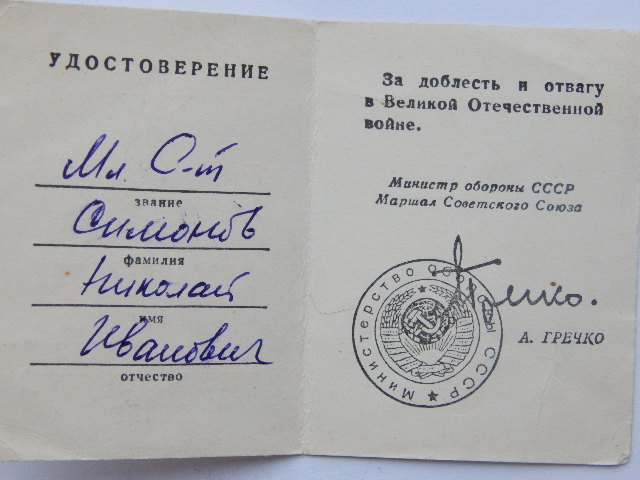 УДОСТОВЕРЕНИЕ
Мл. С-т
звание
Симонов
фамилия
Николай
имя
Иванович
отчество
За доблесть и отвагу
в Великой Отечественной
войне.
Министр обороны СССР
Маршал Советского Союза
Гречко.
А. ГРЕЧКО
Министерство обороны СССР